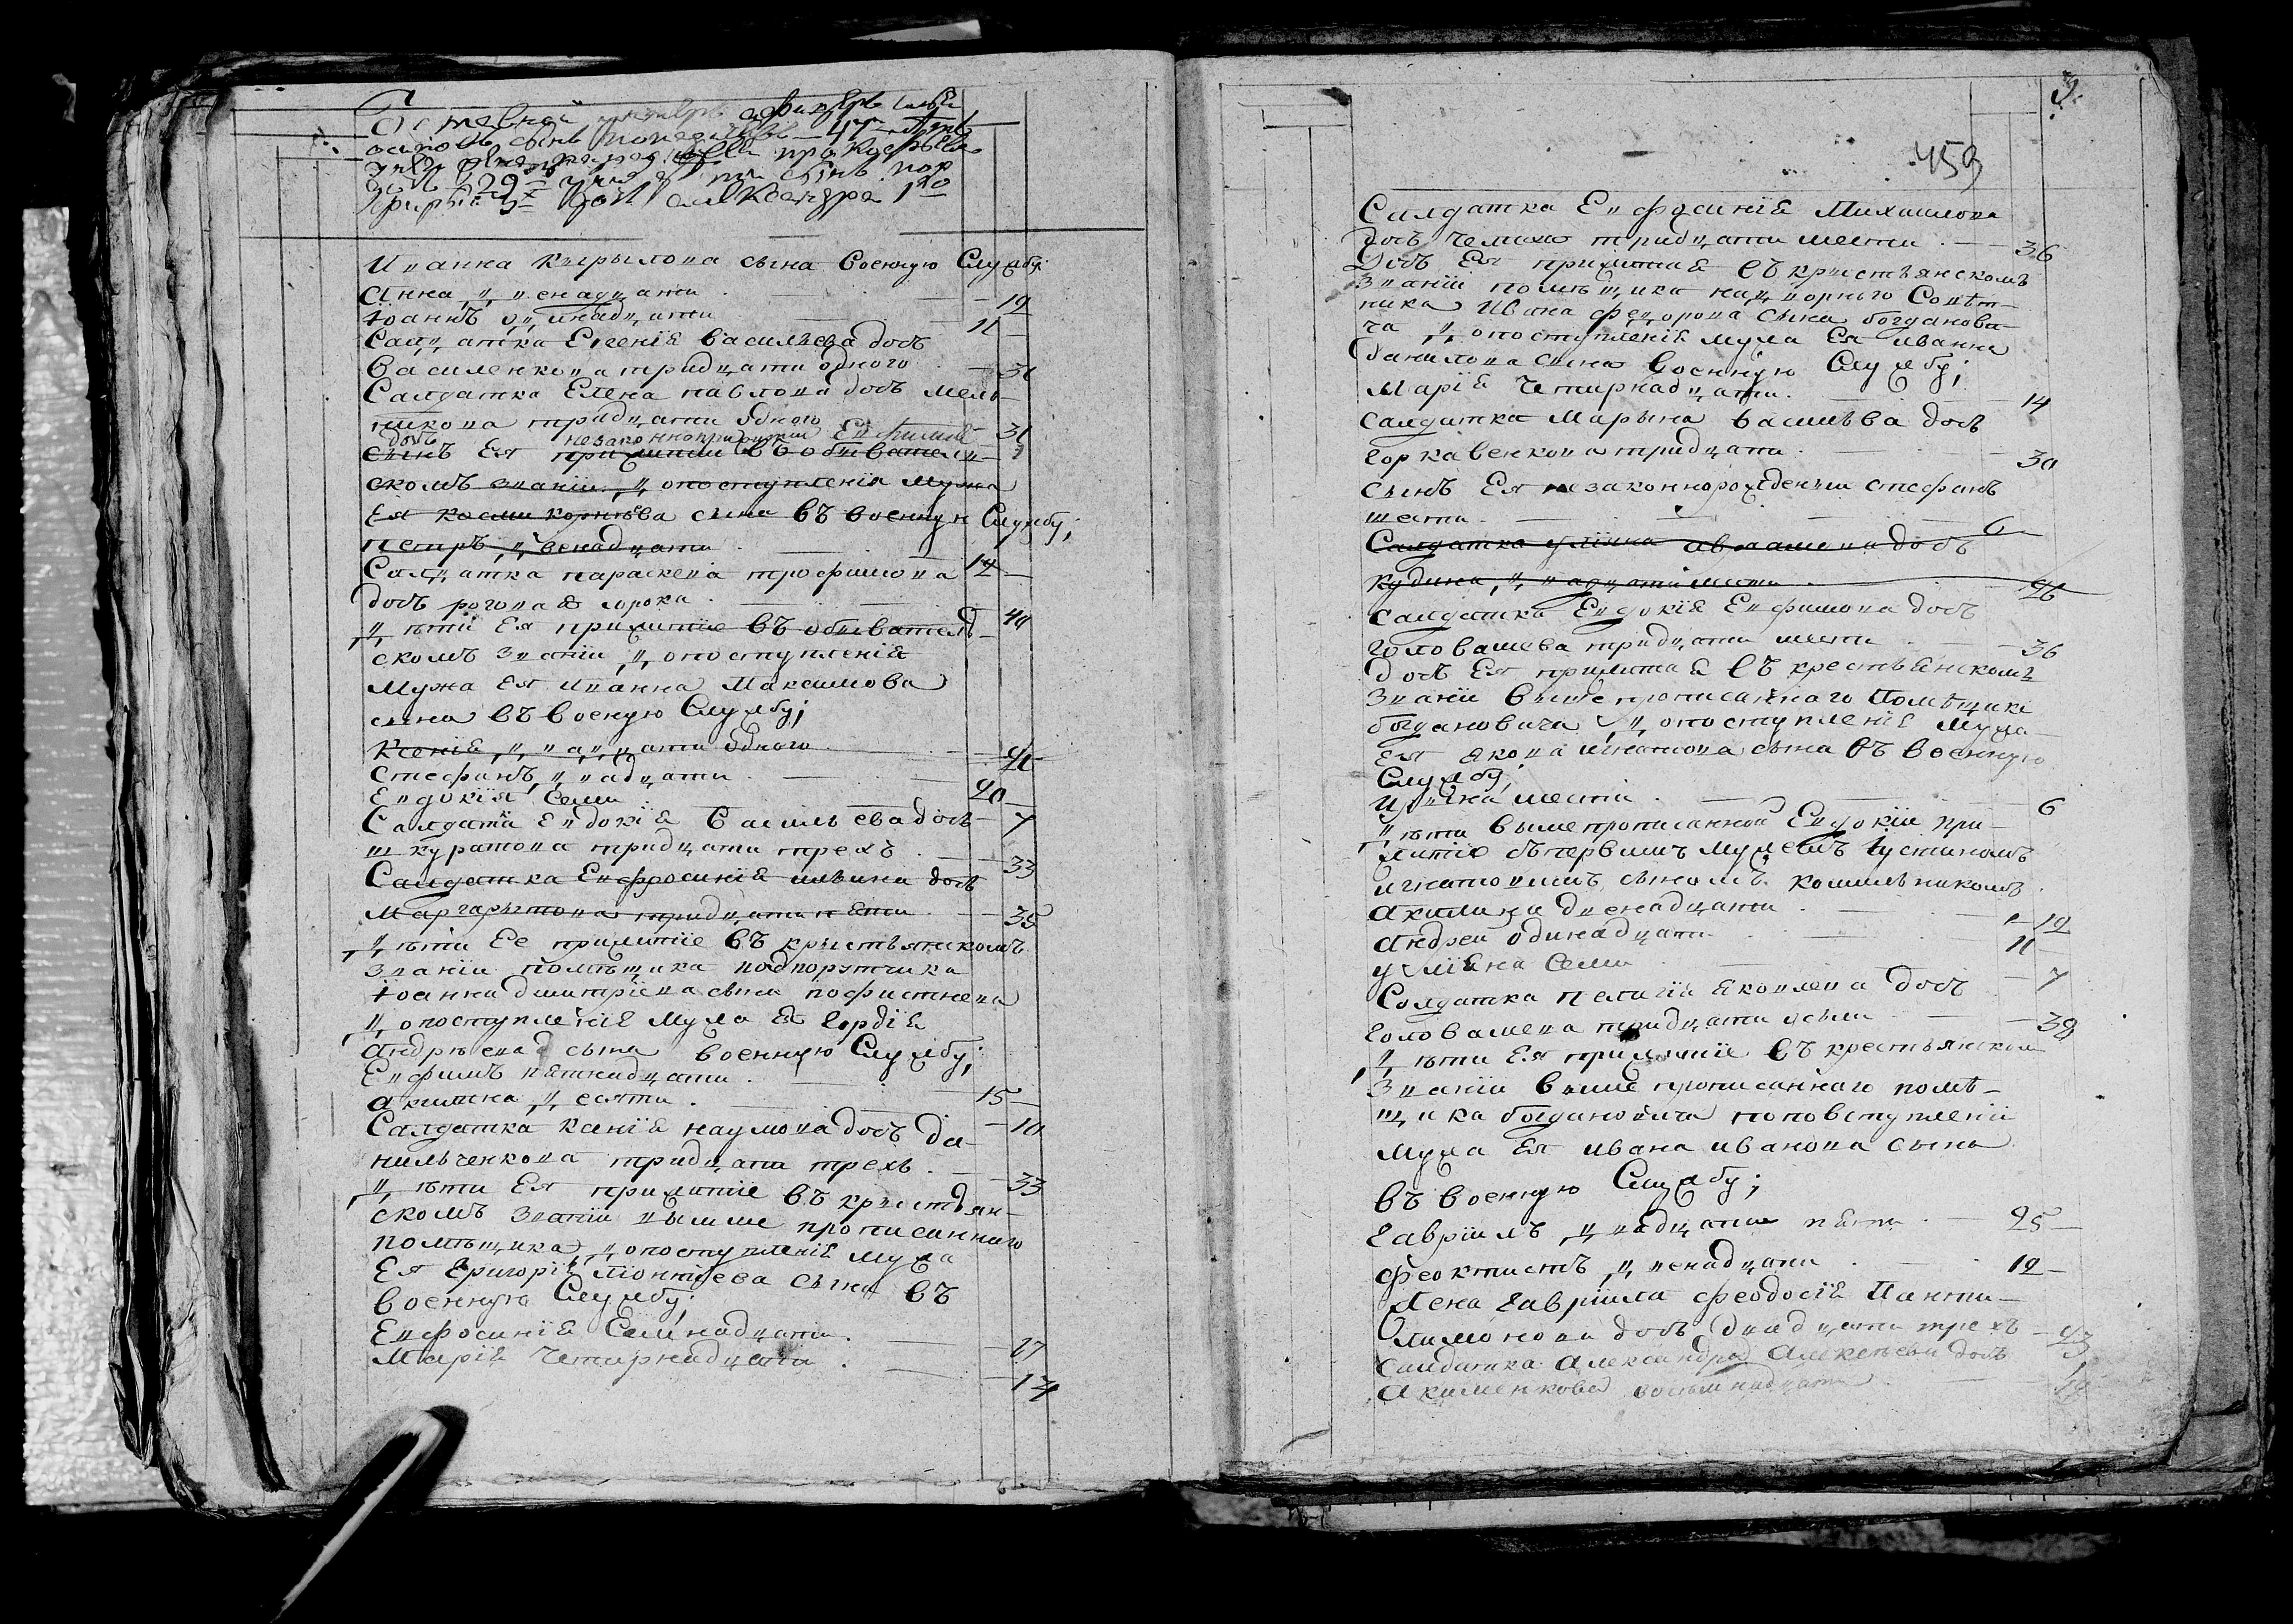 сынъ 47
29
1
Иванна Кырылова сына военную Службу
Анна двенадцати 12
Іоаннъ одинадцати 11
Салдатка Евгеніа васильева дочь
Василенкова тридцати одного 31
Салдатка Елена павлова дочь Мель-
никова тридцати одного 31
дочь незаконноприжитая
сынъ Ея прижитии въ обывател-
скомъ званіи, до поступленія мужа
Ея Косми Корнѣва сына въ военную Службу;
петръ, двенадцати 12
Салдатка параскева трофимова
дочь рогова сорока 40
дѣти Ея прижитіе въ обывател-
скомъ званіи до поступленіа
Мужа Ея Иванна Максимова
сына въ военую Службу;
Ксеніа, двадцати одного 21
Стефанъ, двадцати 20
Евдокія семи 7
Салдатка Евдокіа Васильева дочь
шкуратова тридцати трехъ 33
Салдатка Евфросиніа ильина дочь
Маргарытова тридцати пяти 35
дѣти Ее прижитіе въ крыстьянскомъ
званіи помѣщика подпорутчика
Іоанна дмитріева сына
до поступленіе мужа Ея Гордіа
Андрѣева сына военную Службу;
Евфимъ пятнадцати 15
акилина десяти 10
Салдатка Ксеніа наумова дочь да-
нильченкова тридцати трехъ 33
дѣти Ея прижитіе въ крыстьян-
скомъ званіи выше прописанного
помѣщика, до поступленіа мужа
Ея Григоріа Ліонтіева сына въ
военную Службу;
Евфросиніа Семнадцати 17
Маріа Четырнадцати 14
3.
459
Салдатка Евфросиніа Михаилова
дочь Чемаха тридцати шести 36
Дочь Ея прижитаа въ крыстьянскомъ
званіи помѣщика надворного Совѣт-
ника Ивана федорова сына богданови-
ча до поступленіе мужа Ея иванна
Данилова сына военную Службу;
Маріа Четырнадцати 14
Салдатка Марына васильва дочь
Горкавенкова тридцати 30
Сынъ Ея незаконнорожденыи стефанъ
шести 6
Салдатка авраамова дочь
Кудина, двадцати шести 26
Салдатка Евдокіа Евфимова дочь
Головашева тридцати шести 36
Дочь Ея прижитаа въ крестьянскомъ
званіи выше прописанного помѣщика
богдановича до поступленіе мужа
Ея якова игнатова сына въ военную
Службу;
Ирина шести 6
дѣти вышепрописанной Евдокіи при-
житіе съ первымъ мужемъ Іустиномъ
игнатовимъ сыномъ комильникомъ
Акилина двенадцати 12
Андреи одинадцати 11
уліана Семи 7
Солдатка пелагіа яковлева дочь
Головашева тридцати осьми 38
дѣти Ея прижитіе въ крестьянском
званіи выше прописанного помѣ-
щика богдановича поповступленіи
мужа Ея ивана иванова сына
въ военную Службу;
Гавріилъ, двадцати пяти 25
Феоктистъ, двенадцати 12
Жена Гавріила Феодосіа Панти-
лимонова дочь двадцати трехъ 23
Салдатка Александра Алексѣева дочь
Акименкова восьмнадцати 18